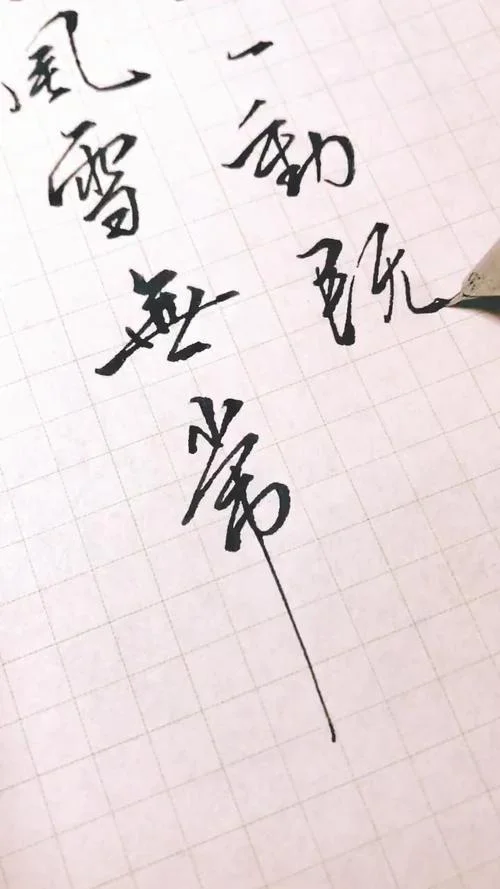 風雪無常
一動既